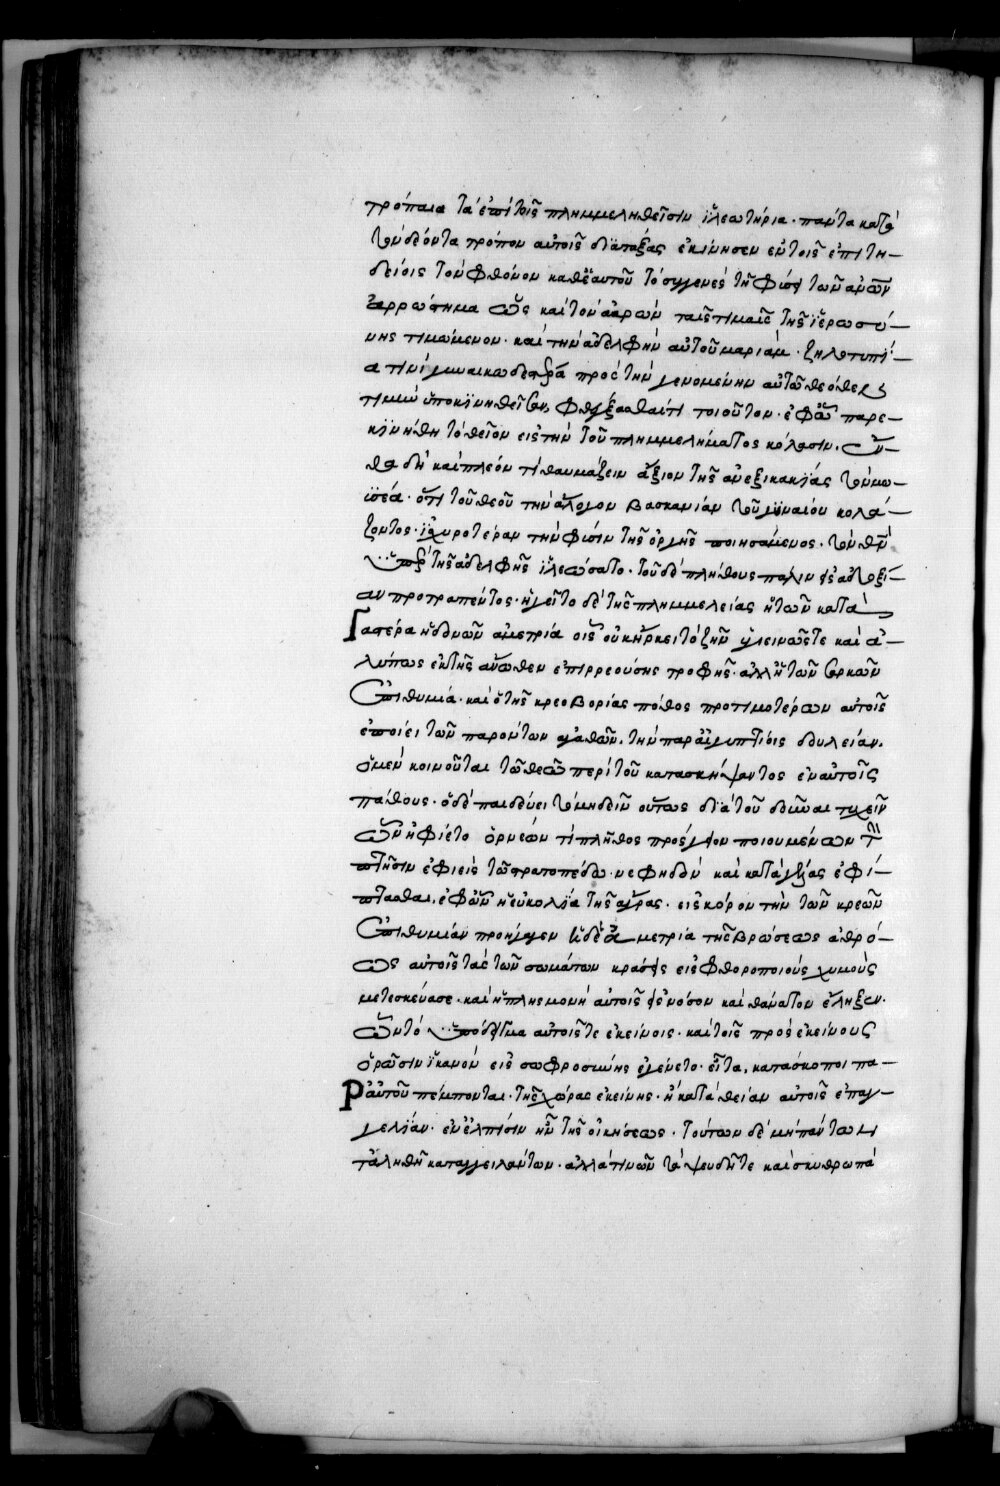 τρόπαια τὰ ἐπὶ τοῖς πλημμεληθεῖσιν ἱλεωτήρια· πάντα κατὰ
τὸν δέοντα τρόπον αὐτοῖς διατάξας ἐκίνησεν ἐν τοῖς ἐπιτη–
δείοις τὸν φθόνον καθ' ἑαυτοῦ τὸ συγγενὲς τῇ φύσει τῶν ἀνῶν
ἀρρώστημα ὡς καὶ τὸν ἀαρὼν ταῖς τιμαῖς τῆς ἱερωσύ–
νης τιμώμενον· καὶ τὴν ἀδελφὴν αὐτοῦ μαριάμ· ζηλοτυπί–
ᾳ τινὶ γυναικωδεστέρᾳ πρὸς τὴν γενομένην αὐτῷ θεόθεν
τιμὴν ὑποκινηθεῖσαν, φθέγξασθαί τι τοιοῦτον· ἐφ' ᾧ παρε–
κινήθη τὸ θεῖον εἰς τὴν τοῦ πλημμελήματος κόλασιν. ἔν–
θα δὴ καὶ πλέον τι θαυμάζειν ἄξιον τῆς ἀνεξικακίας τὸν μω–
ϋσέα· ὅτι τοῦ θεοῦ τὴν ἄλογον βασκανίαν τοῦ γυναίου κολά–
ζοντος· ἰσχυροτέραν τὴν φύσιν τῆς ὀργῆς ποιησάμενος· τὸν θν
ὑπὲρ τῆς ἀδελφῆς ἱλεώσατο· τοῦ δὲ πλήθους πάλιν εἰς ἀταξί–
αν προτραπέντος· ἡγεῖτο δὲ τῆς πλημμελείας ἡ τῶν κατὰ
γαστέρα ἡδονῶν ἀμετρία οἷς οὐκ ἤρκει τὸ ζῆν ὑγιεινῶς τε καὶ ἀ–
λύπως ἐκ τῆς ἄνωθεν ἐπιρρεούσης τροφῆς· ἀλλ' ἡ τῶν σαρκῶν
ἐπιθυμία· καὶ ὁ τῆς κρεοβορίας πόθος προτιμοτέραν αὐτοῖς
ἐποίει τῶν παρόντων ἀγαθῶν, τὴν παρ' αἰγυπτίοις δουλείαν.
ὁ μὲν κοινοῦται τῷ θεῷ περὶ τοῦ κατασκήψαντος ἐν αὐτοῖς
πάθους· ὁ δὲ παιδεύει τὸ μὴ δεῖν οὕτως διὰ τοῦ δοῦναι τυχεῖν
ὧν ἠφίετο ὀρνέων τι πλῆθος πρόσγειον ποιουμένων τὴν
πτῆσιν ἐφιεὶς τῷ στρατοπέδῳ· νεφηδὸν καὶ κατ' ἀγέλας ἐφί–
πτασθαι, ἐφ' ὧν ἡ εὐκολία τῆς ἄγρας· εἰς κόρον τὴν τῶν κρεῶν
ἐπιθυμίαν προήγαγεν ἡ δὲ ἀμετρία τῆς βρώσεως ἀθρό–
ως αὐτοῖς τὰς τῶν σωμάτων κράσεις εἰς φθοροποιοὺς χυμοὺς
μετεσκεύασε· καὶ ἡ πλησμονὴ αὐτοῖς εἰς νόσον καὶ θάνατον ἔληξεν.
ὧν τὸ ὑπόδειγμα αὐτοῖς τε ἐκείνοις· καὶ τοῖς πρὸς ἐκείνους
ὁρῶσιν ἱκανὸν εἰς σωφροσύνης ἐγένετο· εἶτα, κατάσκοποι πα–
ρ' αὐτοῦ πέμπονται· τῆς χώρας ἐκείνης· ἡ κατὰ θείαν αὐτοῖς ἐπαγ–
γελίαν· ἐν ἐλπίσιν ἦν τῆς οἰκήσεως· τούτων δὲ μὴ πάντων
τἀληθῆ καταγγειλάντων· ἀλλά τινων τὰ ψευδῆ τε καὶ σκυθρωπὰ